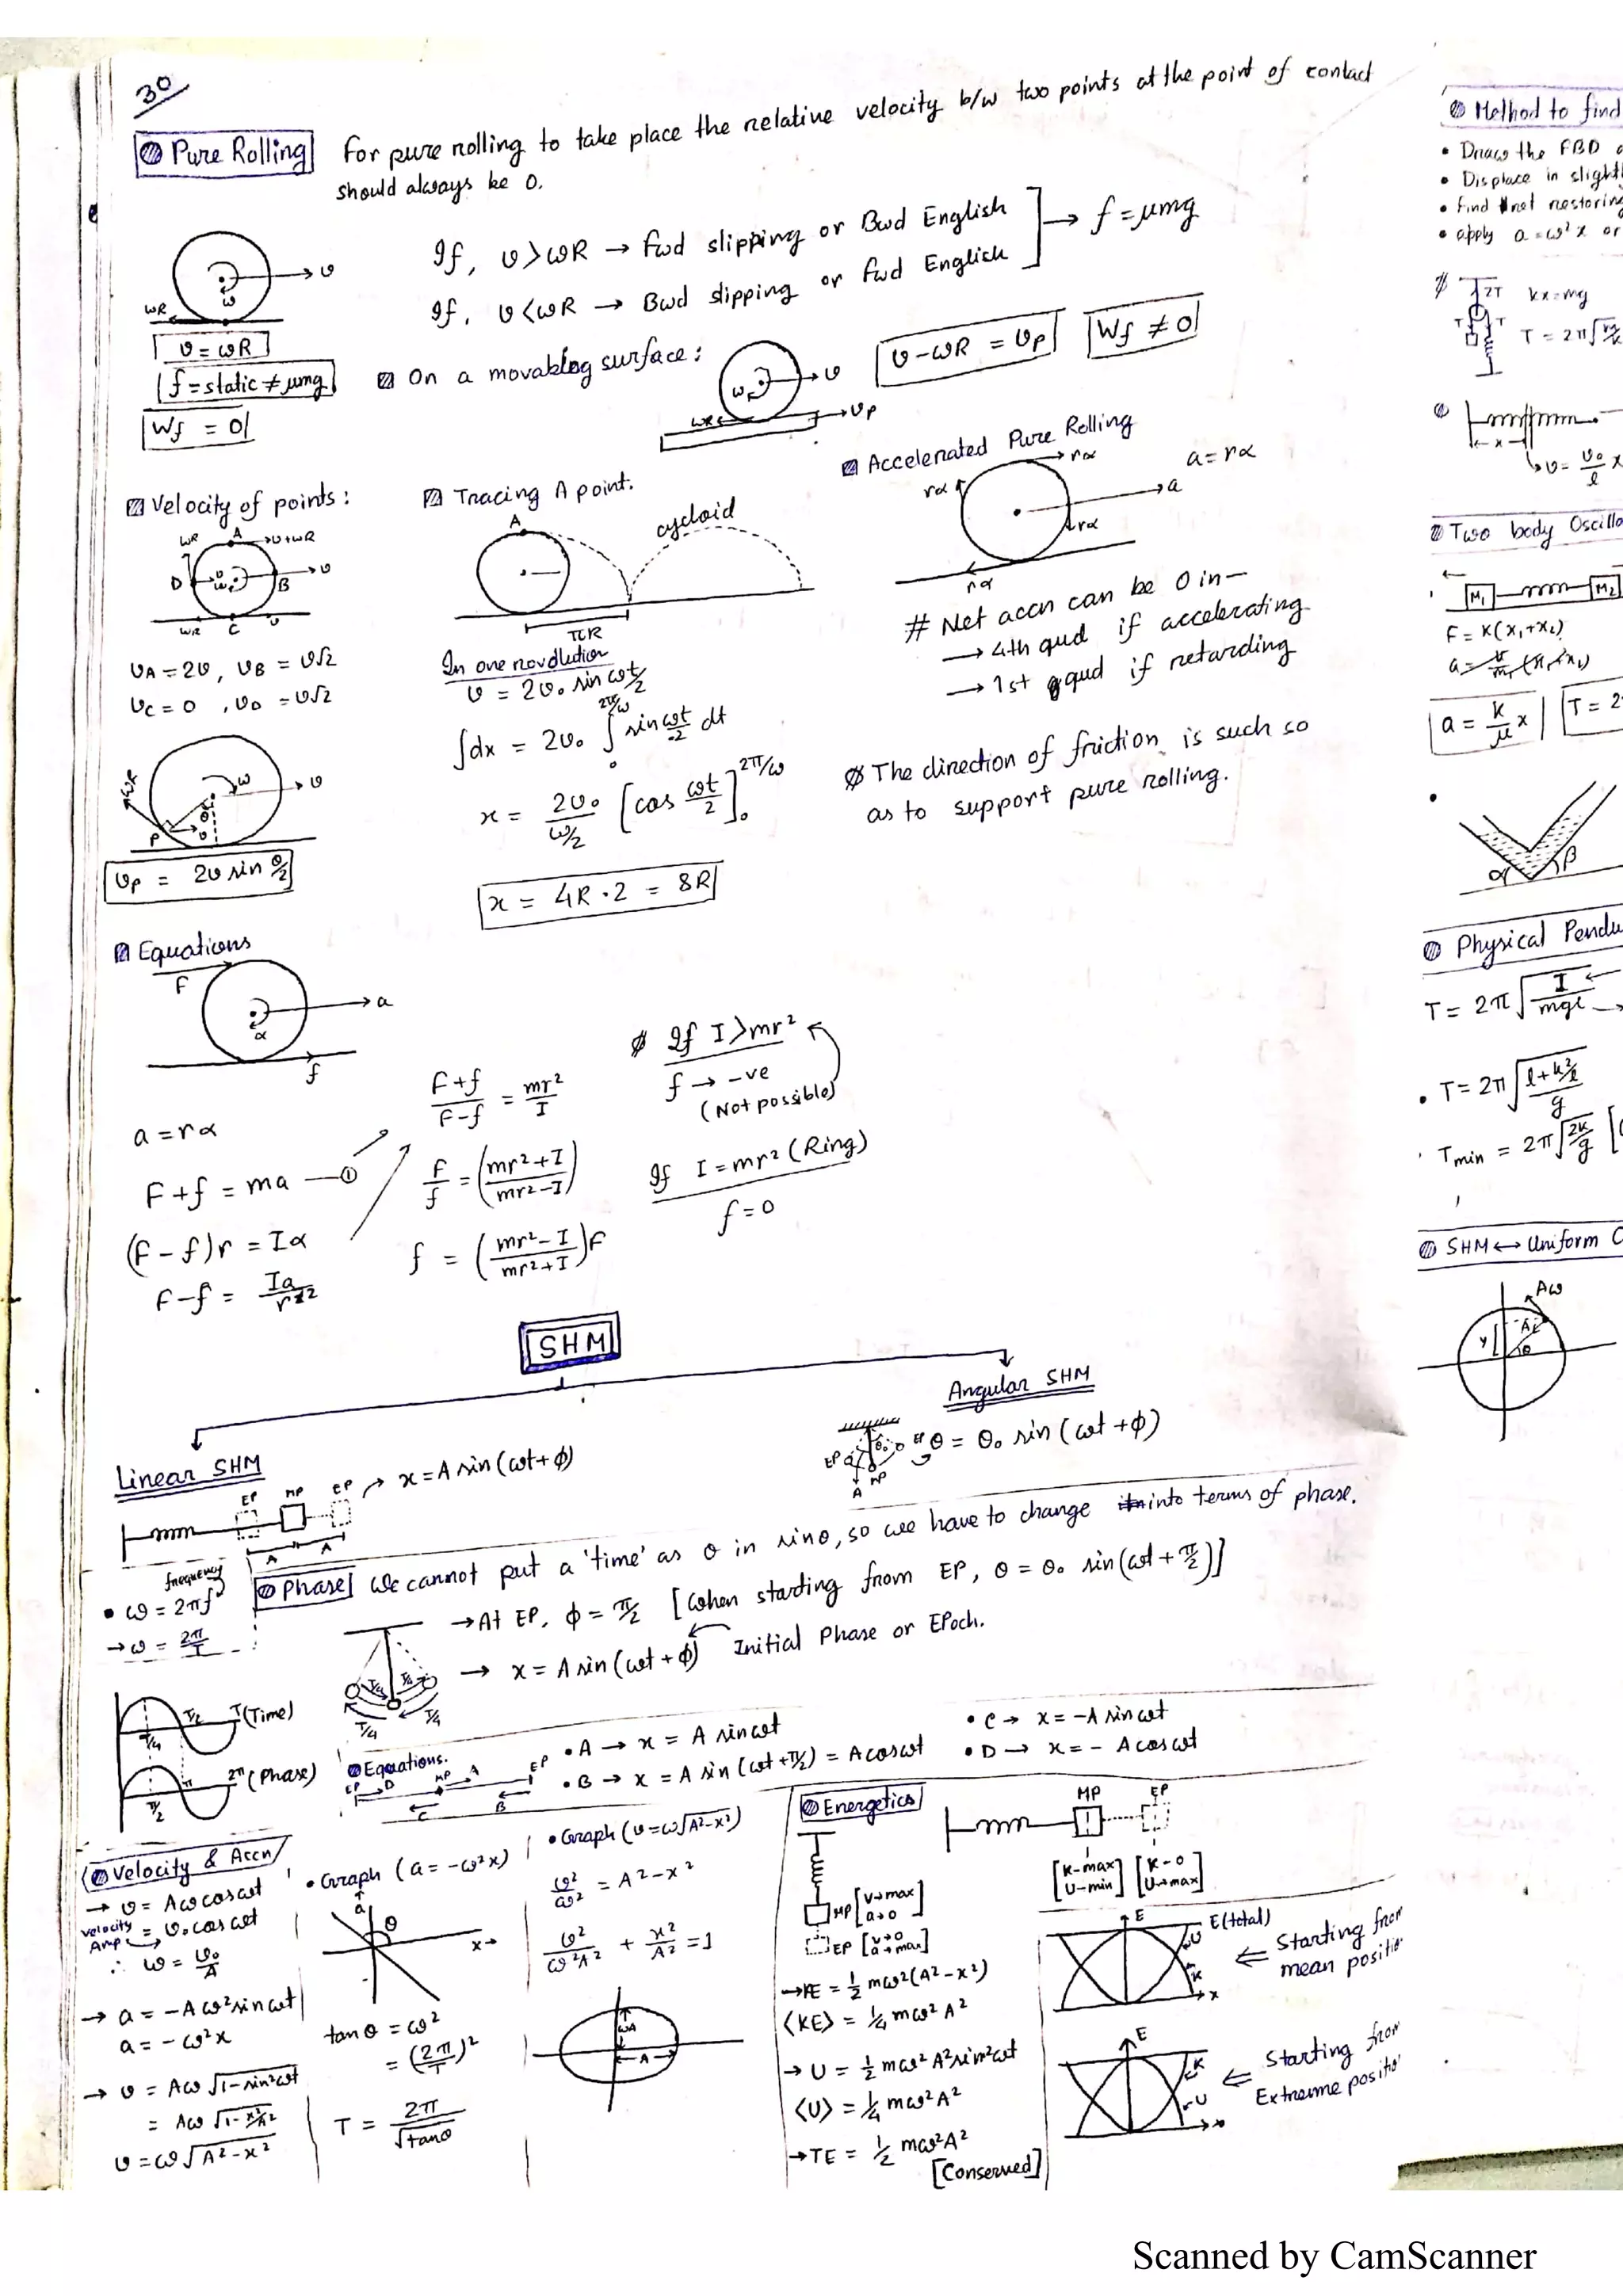 30
Pure Rolling
For pure rolling to take place the relative velocity b/w two points at the point of contact
should always be 0.
If, v > ωR → fwd slipping or Bwd English
If, v < ωR → Bwd slipping or fwd English
→ f = μmg
ωR
ω
v
v = ωR
f = static ≠ μmg
Wf = 0
On a movable surface :
ω
v
ωR
vP
v - ωR = vP
Wf ≠ 0
Velocity of points :
ωR
A
v + ωR
D
v
ω
B
v
ωR
C
v
vA = 2v, vB = v√2
vC = 0, vD = v√2
ωR
ω
v
θ
P
v
vP = 2v sin θ/2
Tracing A point.
A
cycloid
πR
In one revolution
v = 2v₀ sin ωt/2
∫dx = 2v₀ ∫₀^(2π/ω) sin ωt/2 dt
x = 2v₀/(ω/2) [cos ωt/2]₀^(2π/ω)
x = 4R · 2 = 8R
Accelerated Pure Rolling
rα
rα
a
rα
rα
a = rα
# Net accn can be 0 in -
→ 4th qud if accelerating
→ 1st qud if retarding
The direction of friction is such so
as to support pure rolling.
Equations
F
a
α
f
a = rα
F + f = ma — ①
(F - f)r = Iα
F - f = Ia/r²
(F+f)/(F-f) = mr²/I
F/f = ((mr²+I)/(mr²-I))
f = ((mr²-I)/(mr²+I))F
If I > mr²
f → -ve
(Not possible)
If I = mr² (Ring)
f = 0
SHM
Linear SHM
EP
MP
EP
x = A sin (ωt + ϕ)
A
A
Angular SHM
θ₀
EP
EP
MP
A
θ = θ₀ sin (ωt + ϕ)
frequency
• ω = 2πf
→ ω = 2π/T
Phase
We cannot put a 'time' as θ in sinθ, so we have to change into terms of phase.
→ At EP, ϕ = π/2 [when starting from EP, θ = θ₀ sin(ωt + π/2)]
→ x = A sin (ωt + ϕ) Initial Phase or EPoch.
T/4
T/4
T/4
T/4
T/4
T/2
T (Time)
π/2
π
2π (Phase)
Equations.
EP
D
MP
A
EP
C
B
• A → x = A sin ωt
• B → x = A sin (ωt + π/2) = A cos ωt
• C → x = -A sin ωt
• D → x = - A cos ωt
Velocity & Accn
→ v = Aω cos ωt
velocity Amp = v₀ cos ωt
∴ ω = v₀/A
→ a = -Aω² sin ωt
a = -ω²x
→ v = Aω √(1-sin²ωt)
= Aω √(1-x²/A²)
v = ω√(A²-x²)
• Graph (a = -ω²x)
a
θ
x→
tan θ = ω²
= (2π/T)²
T = 2π/√tanθ
• Graph (v = ω√(A²-x²))
v²/ω² = A² - x²
v²/(ω²A²) + x²/A² = 1
ωA
A
Energetics
MP [v→max a→0]
EP [v→0 a→max]
→ KE = 1/2 mω²(A²-x²)
⟨KE⟩ = 1/4 mω²A²
→ U = 1/2 mω²A² sin²ωt
⟨U⟩ = 1/4 mω²A²
→ TE = 1/2 mω²A²
[Conserved]
MP
EP
[K-max U-min]
[K-0 U→max]
E
E (total)
U
K
x
⇐ Starting from
mean positio
E
K
U
x
⇐ Starting from
Extreme positio
Method to find
• Draw the FBD
• Displace in slight
• find net restoring
• apply a = ω²x or
2T
T
T
kx = mg
x
v = v₀/l x
Two body Oscillo
M₁
M₂
F = K(x₁+x₂)
a = K/μ x
T = 2
α
β
Physical Pendu
T = 2π √(I/mgl)
• T = 2π √((l+k²/l)/g)
• Tmin = 2π √(2k/g)
SHM ↔ Uniform C
Aω
A
y
θ
Scanned by CamScanner